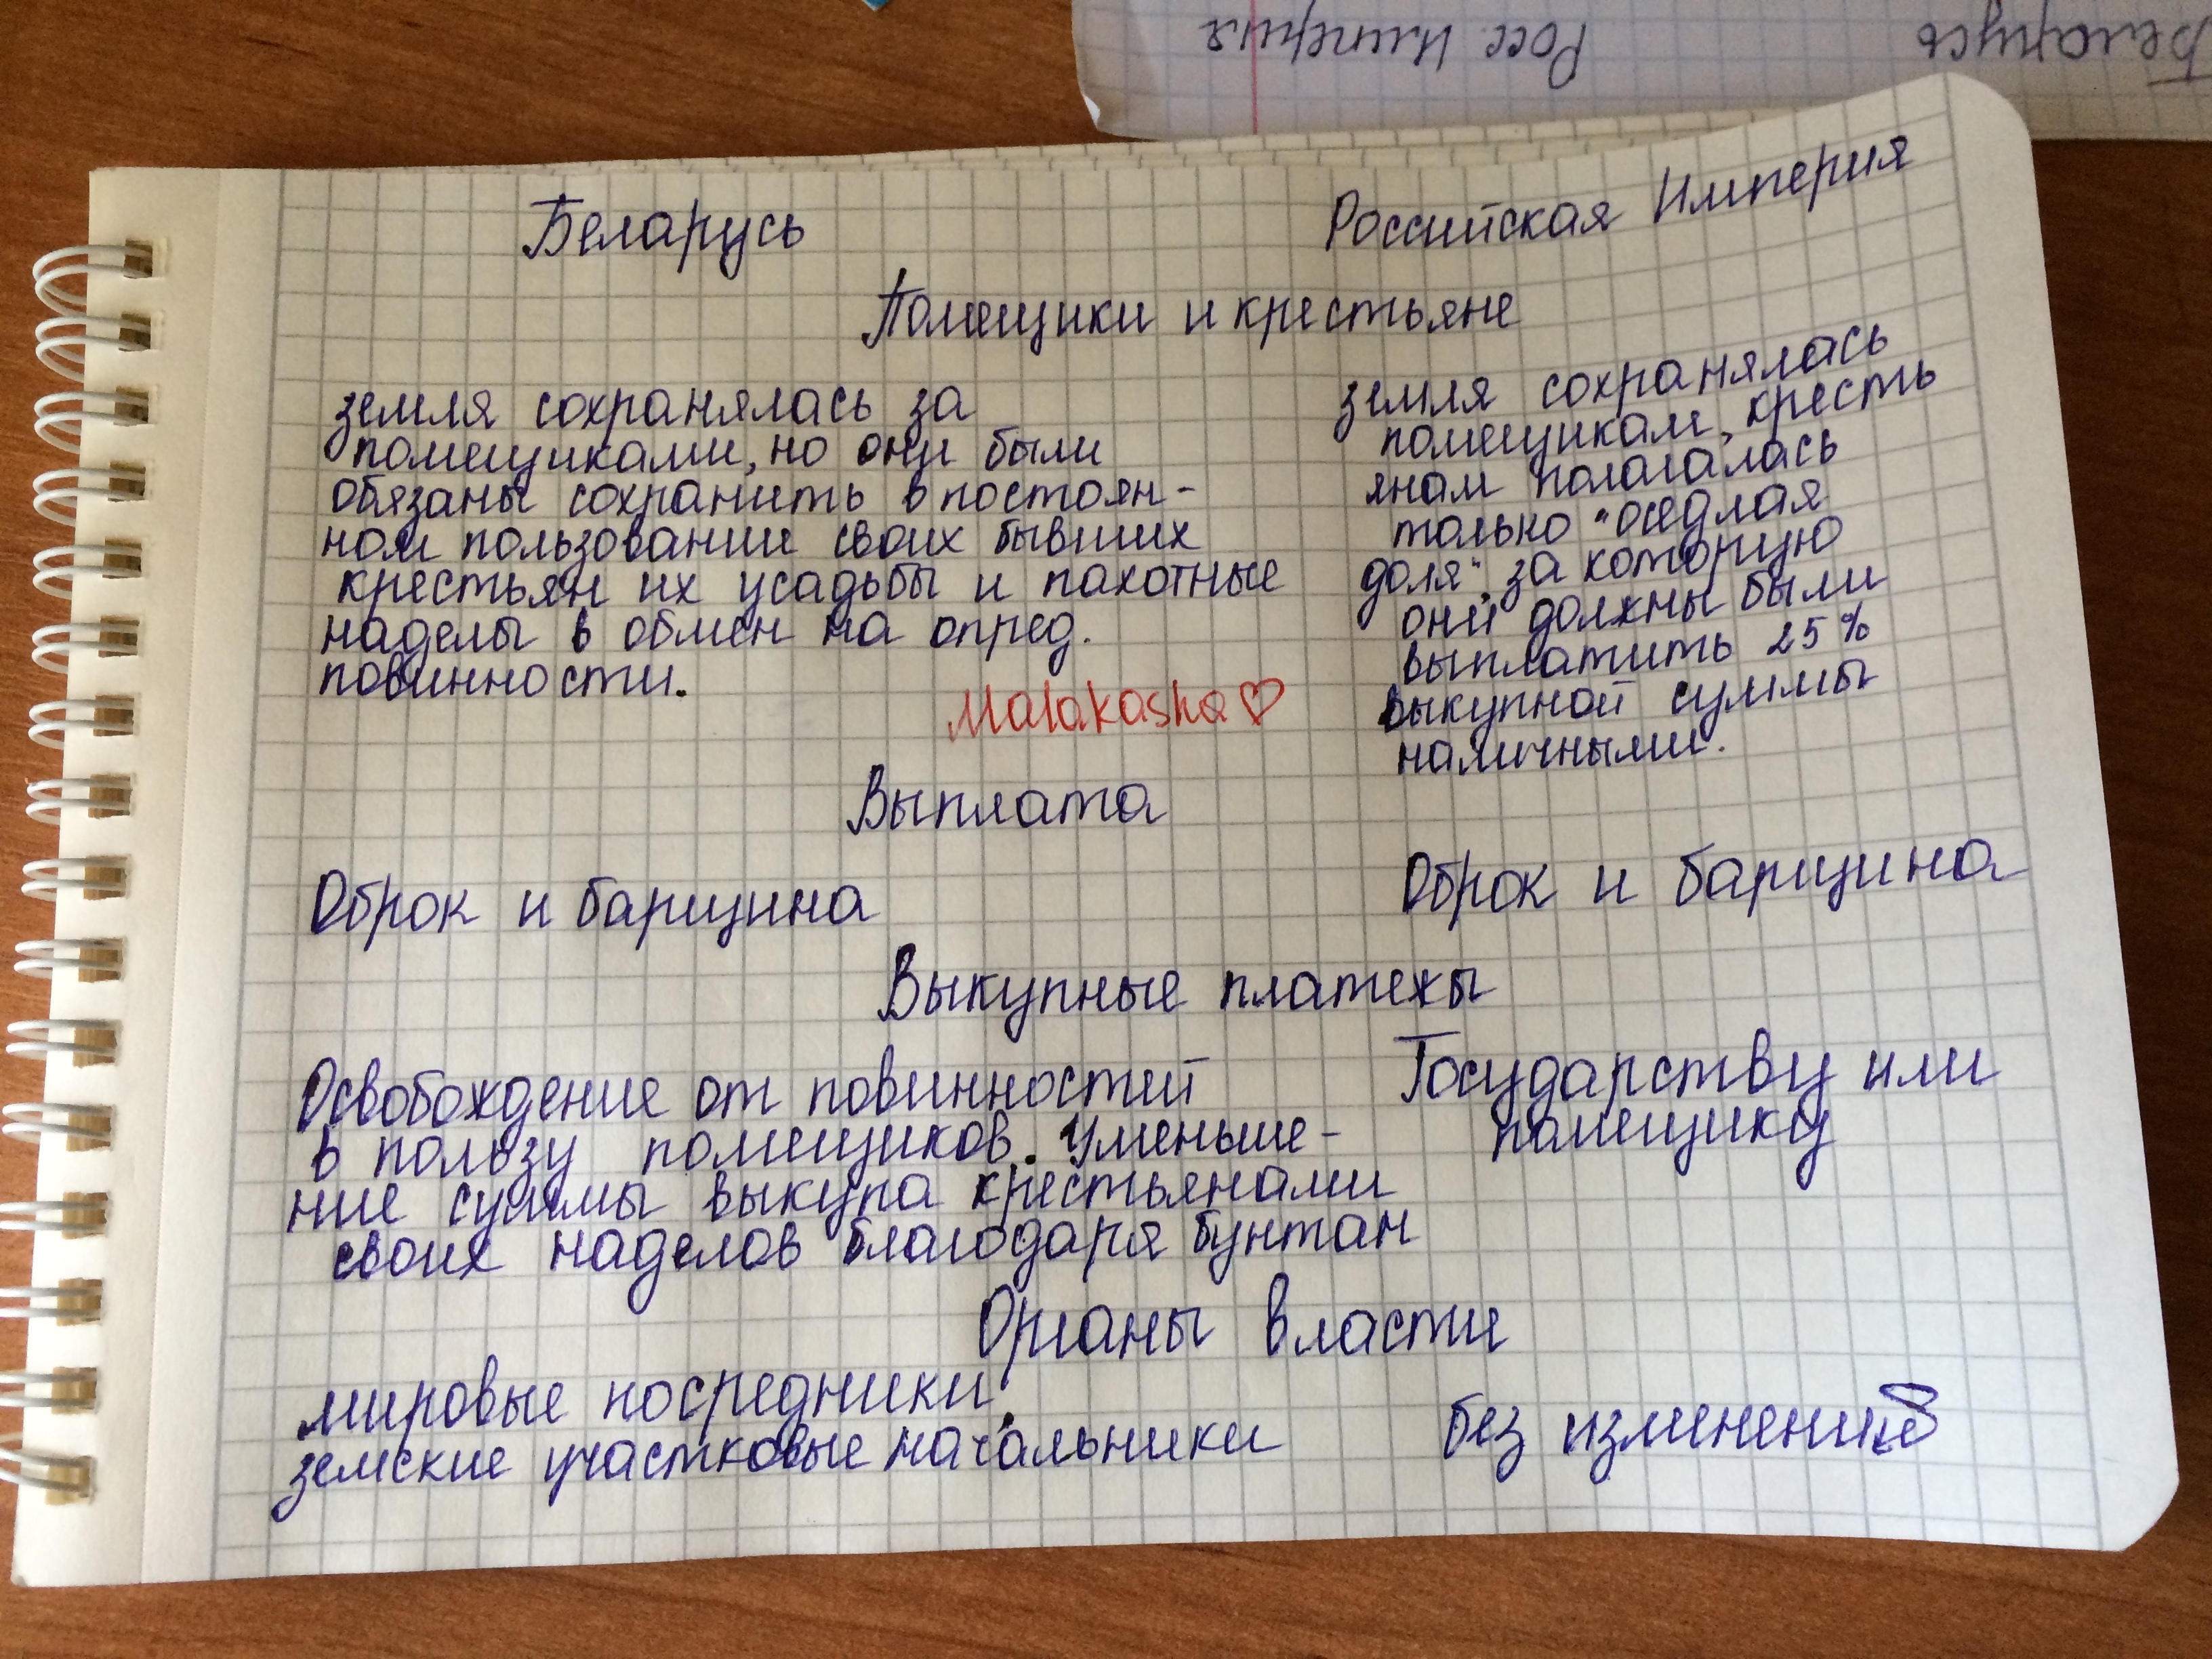 Беларусь
Росс. Империя
Беларусь Российская Империя
Помещики и крестьяне
земля сохранялась за
помещиками, но они были
обязаны сохранить в постоян-
ном пользовании своих бывших
крестьян их усадьбы и пахотные
наделы в обмен на опред.
повинности.
земля сохранялась
помещикам, кресть
янам полагалась
только "оседлая
доля", за которую
они должны были
выплатить 25%
выкупной суммы
наличными.
Malakasha♡
Выплата
Оброк и барщина Оброк и барщина
Выкупные платежы
Освобождение от повинностей
в пользу помещиков. Уменьше-
ние суммы выкупа крестьянами
своих наделов благодаря бунтан
Государству или
помещику
Органы власти
мировые посредники,
земские участковые начальники
без изменений